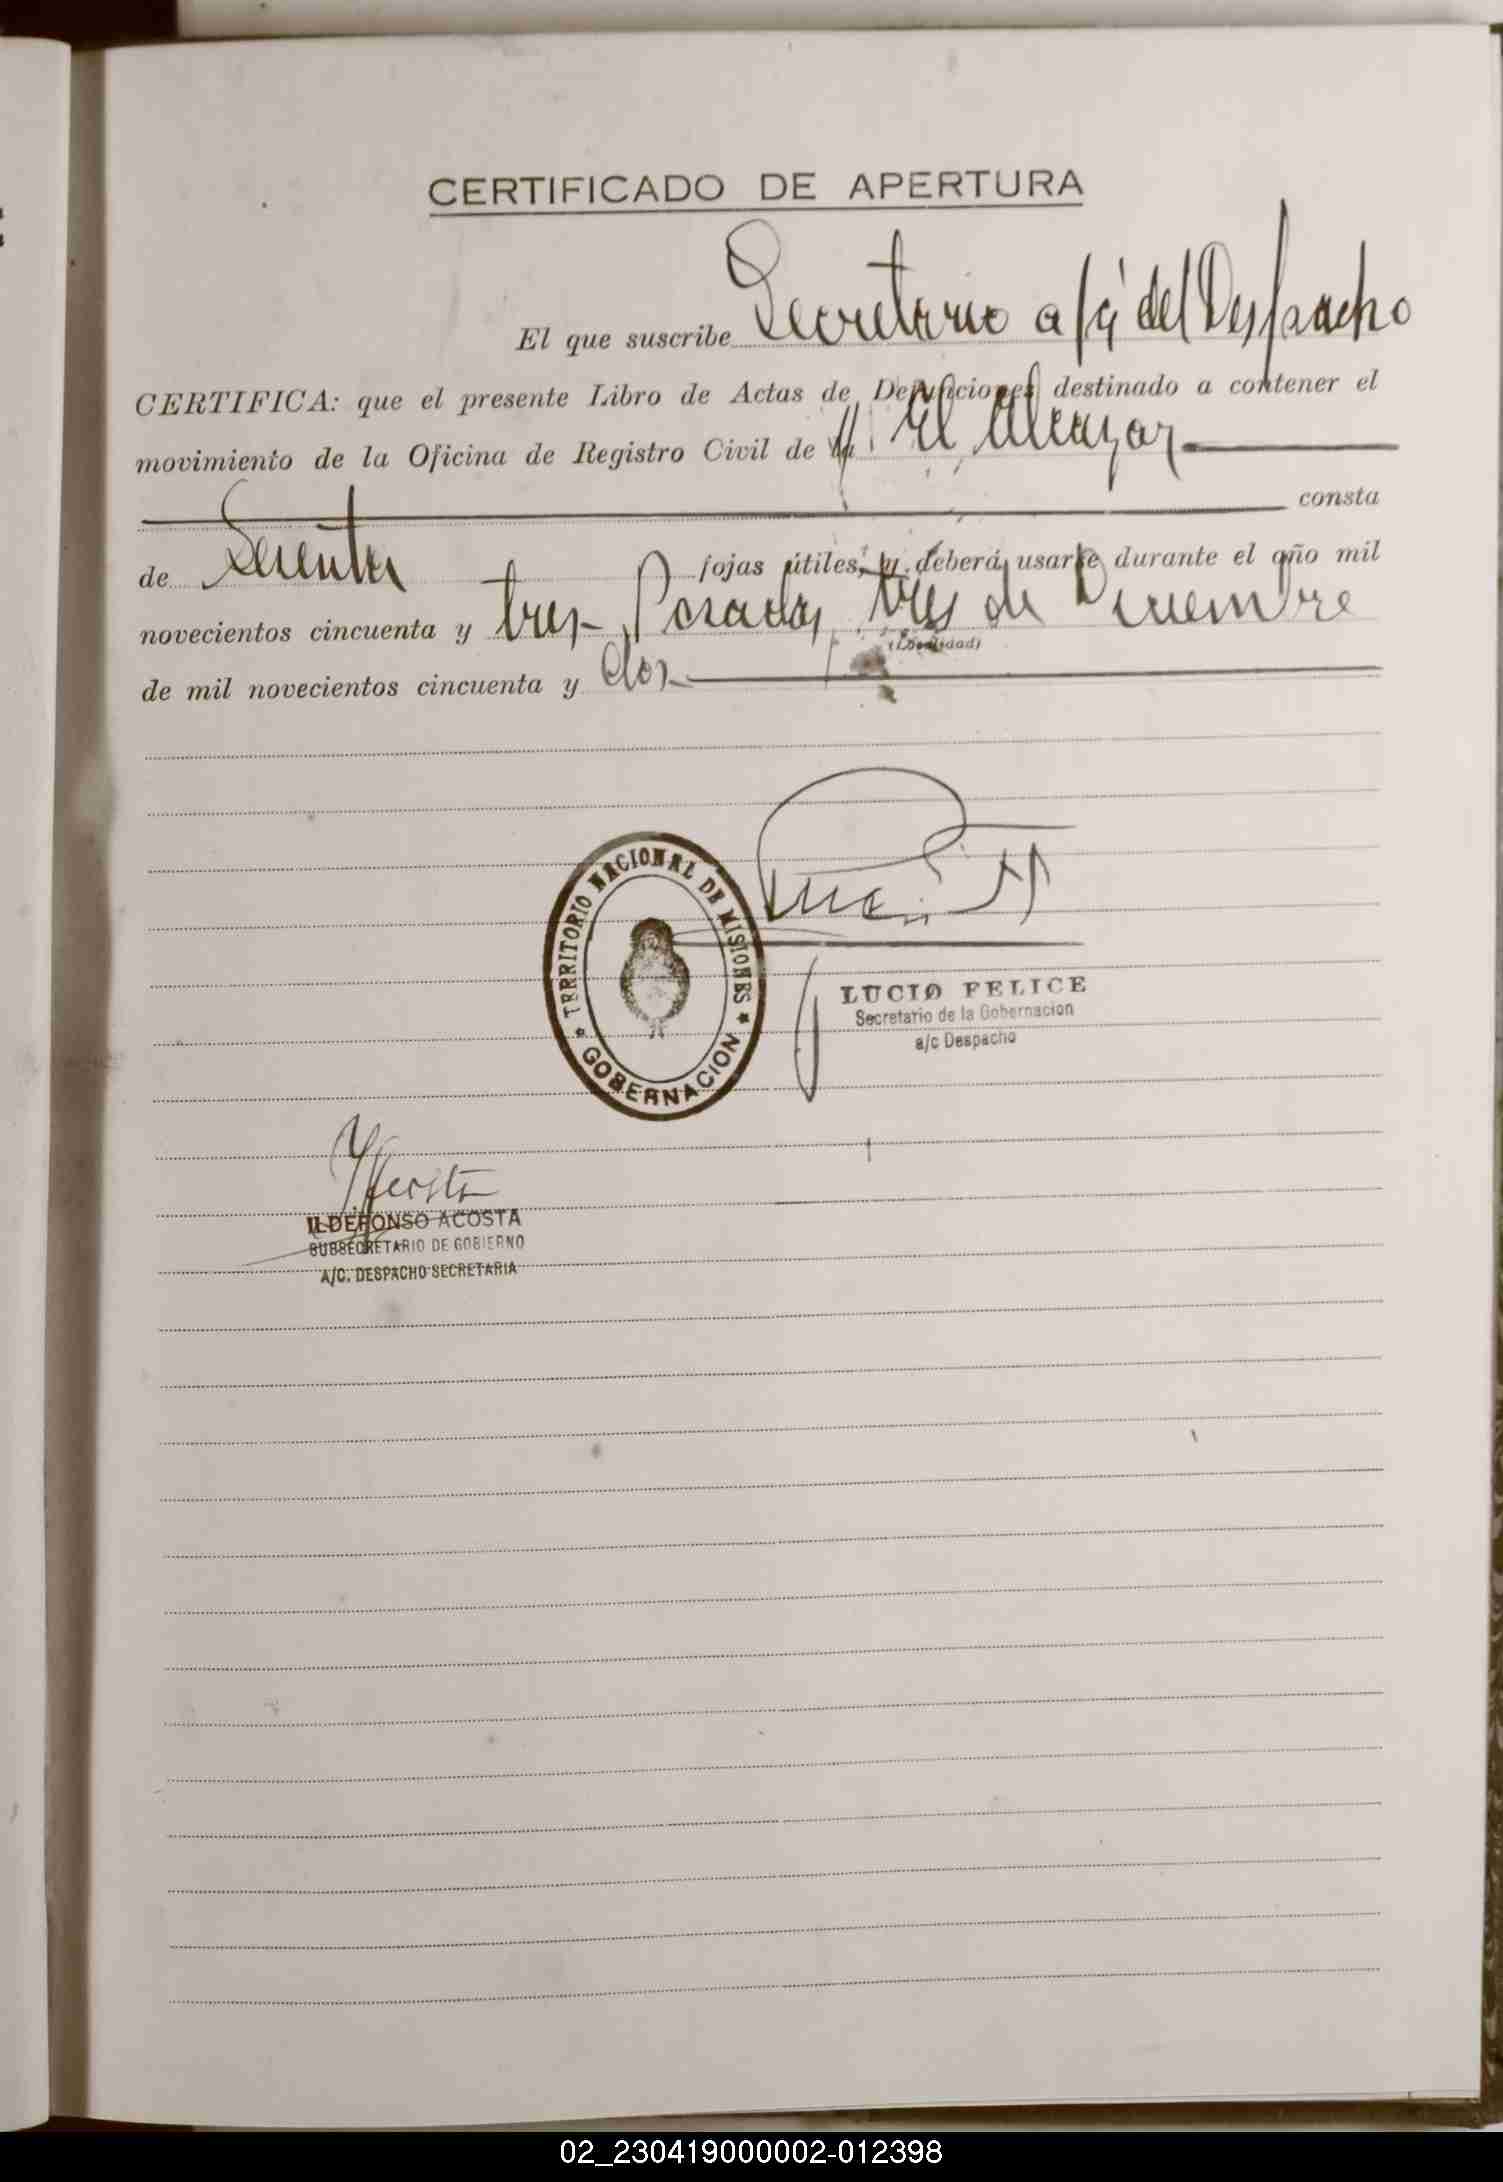 CERTIFICADO DE APERTURA
El que suscribe Secretario a/c del Despacho
CERTIFICA: que el presente Libro de Actas de Defunciones destinado a contener el
movimiento de la Oficina de Registro Civil de El Alcazar
consta
de Sesenta fojas útiles, y deberá usarse durante el año mil
novecientos cincuenta y tres- Posadas, tres de Diciembre
(Localidad)
de mil novecientos cincuenta y dos
TERRITORIO NACIONAL DE MISIONES
GOBERNACION
LUCIO FELICE
Secretario de la Gobernacion
a/c Despacho
ILDEFONSO ACOSTA
SUBSECRETARIO DE GOBIERNO
A/C. DESPACHO SECRETARIA
02_230419000002-012398